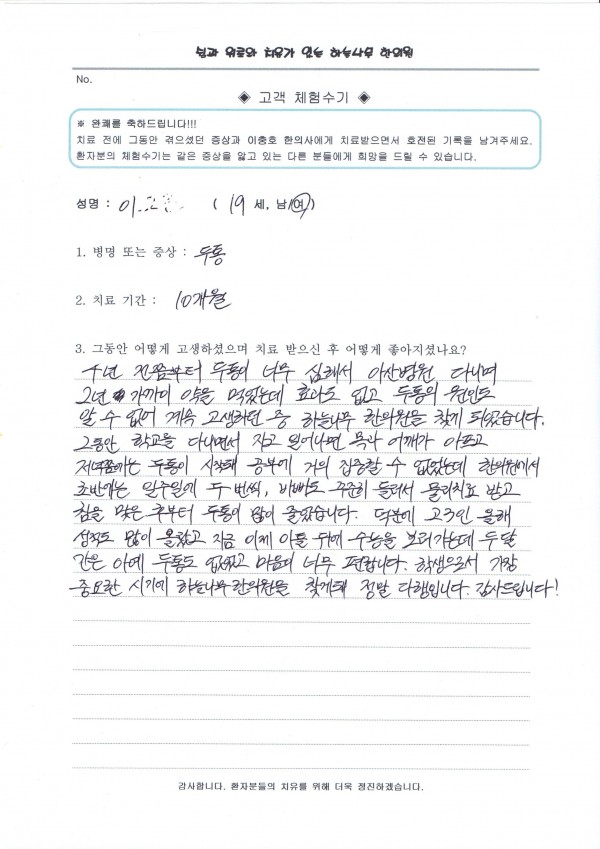 쉼과 위로와 치유가 있는 하늘나무 한의원
No.
◈ 고객 체험수기 ◈
※ 완쾌를 축하드립니다!!!
치료 전에 그동안 겪으셨던 증상과 이충호 한의사에게 치료받으면서 호전된 기록을 남겨주세요.
환자분의 체험수기는 같은 증상을 앓고 있는 다른 분들에게 희망을 드릴 수 있습니다.
성명 : 이 ( 19 세, 남/여)
1. 병명 또는 증상 : 두통
2. 치료 기간 : 10개월
3. 그동안 어떻게 고생하셨으며 치료 받으신 후 어떻게 좋아지셨나요?
수년 전쯤부터 두통이 너무 심해서 아산병원 다니며
2년 가까이 약을 먹었는데 효과도 없고 두통의 원인도
알 수 없어 계속 고생하던 중 하늘나무 한의원을 찾게 되었습니다.
그동안 학교를 다니면서 자고 일어나면 목과 어깨가 아프고
저녁쯤에는 두통이 시작돼 공부에 거의 집중할 수 없었는데 한의원에서
초반에는 일주일에 두 번씩, 바빠도 꾸준히 들러서 물리치료 받고
침을 맞은 후부터 두통이 많이 줄었습니다. 덕분에 고3인 올해
성적도 많이 올랐고 지금 이제 이틀 뒤에 수능을 보러가는데 두달
간은 아예 두통도 없었고 마음이 너무 편합니다. 학생으로서 가장
중요한 시기에 하늘나무한의원을 찾게돼 정말 다행입니다. 감사드립니다!
감사합니다. 환자분들의 치유를 위해 더욱 정진하겠습니다.